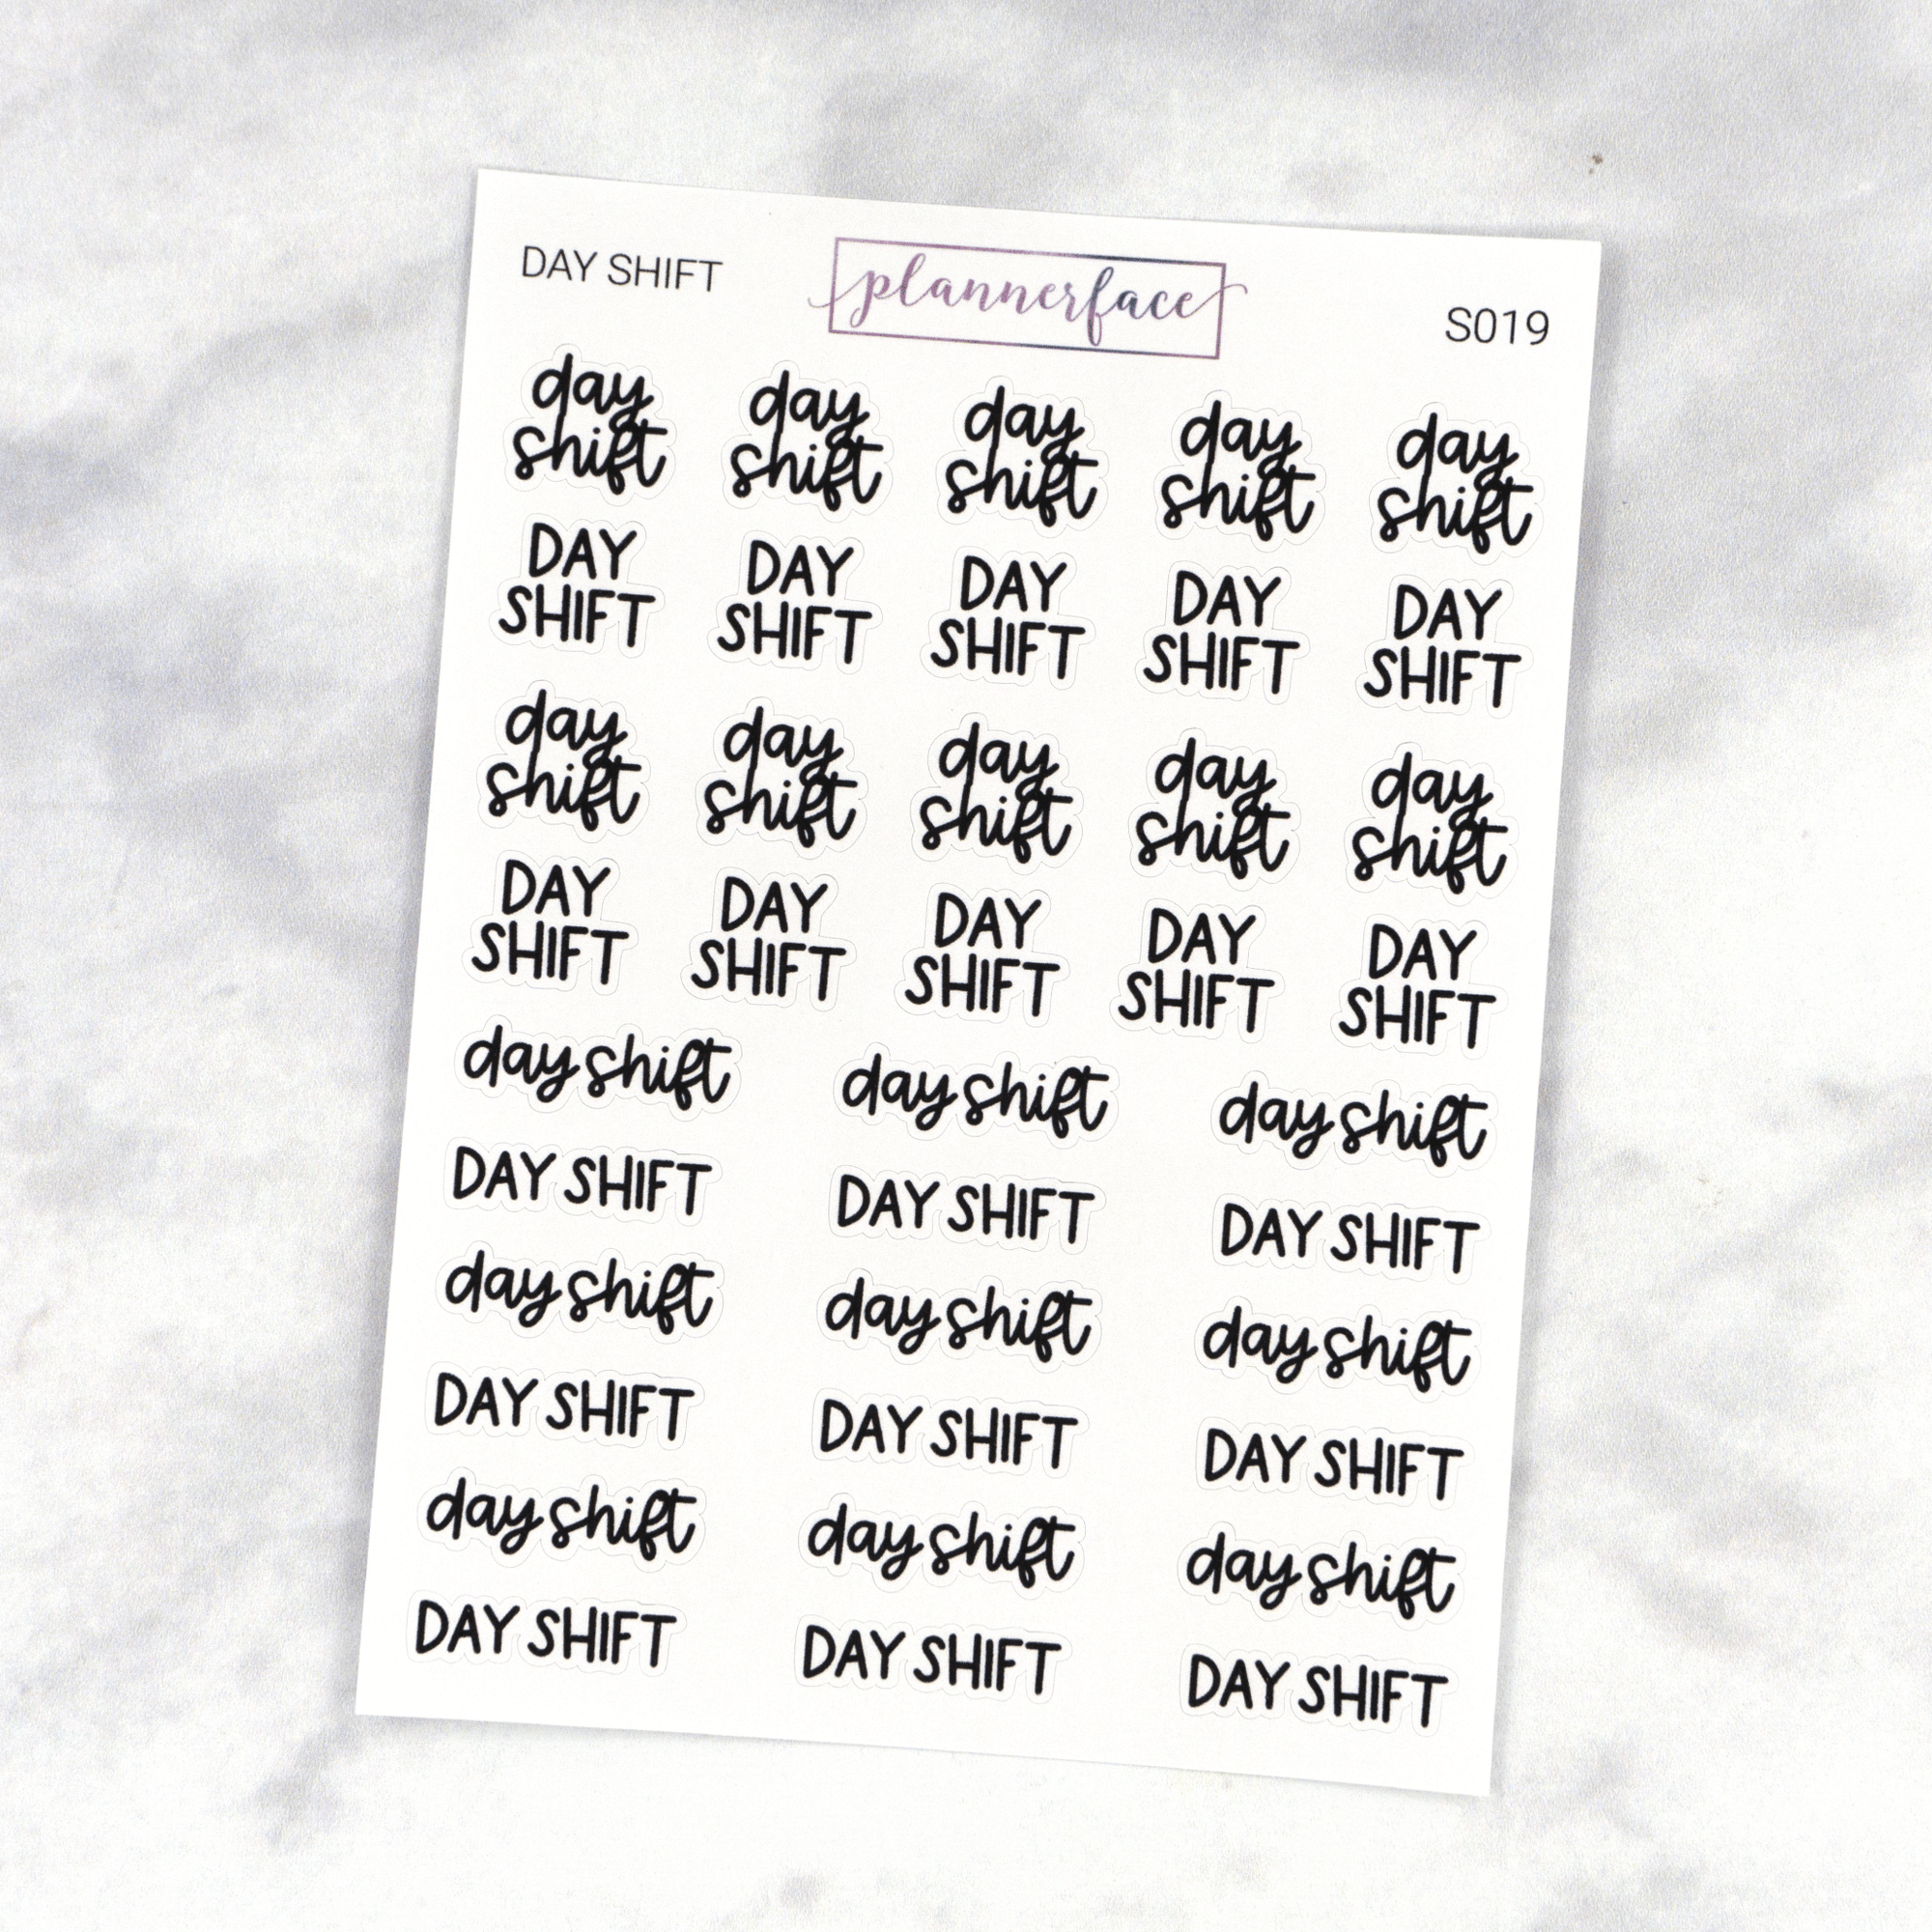 DAY SHIFT plannerface S019
day day day day day
shift shift shift shift shift
DAY DAY DAY DAY DAY
SHIFT SHIFT SHIFT SHIFT SHIFT
day day day day day
shift shift shift shift shift
DAY DAY DAY DAY DAY
SHIFT SHIFT SHIFT SHIFT SHIFT
day shift day shift day shift
DAY SHIFT DAY SHIFT DAY SHIFT
day shift day shift day shift
DAY SHIFT DAY SHIFT DAY SHIFT
day shift day shift day shift
DAY SHIFT DAY SHIFT DAY SHIFT